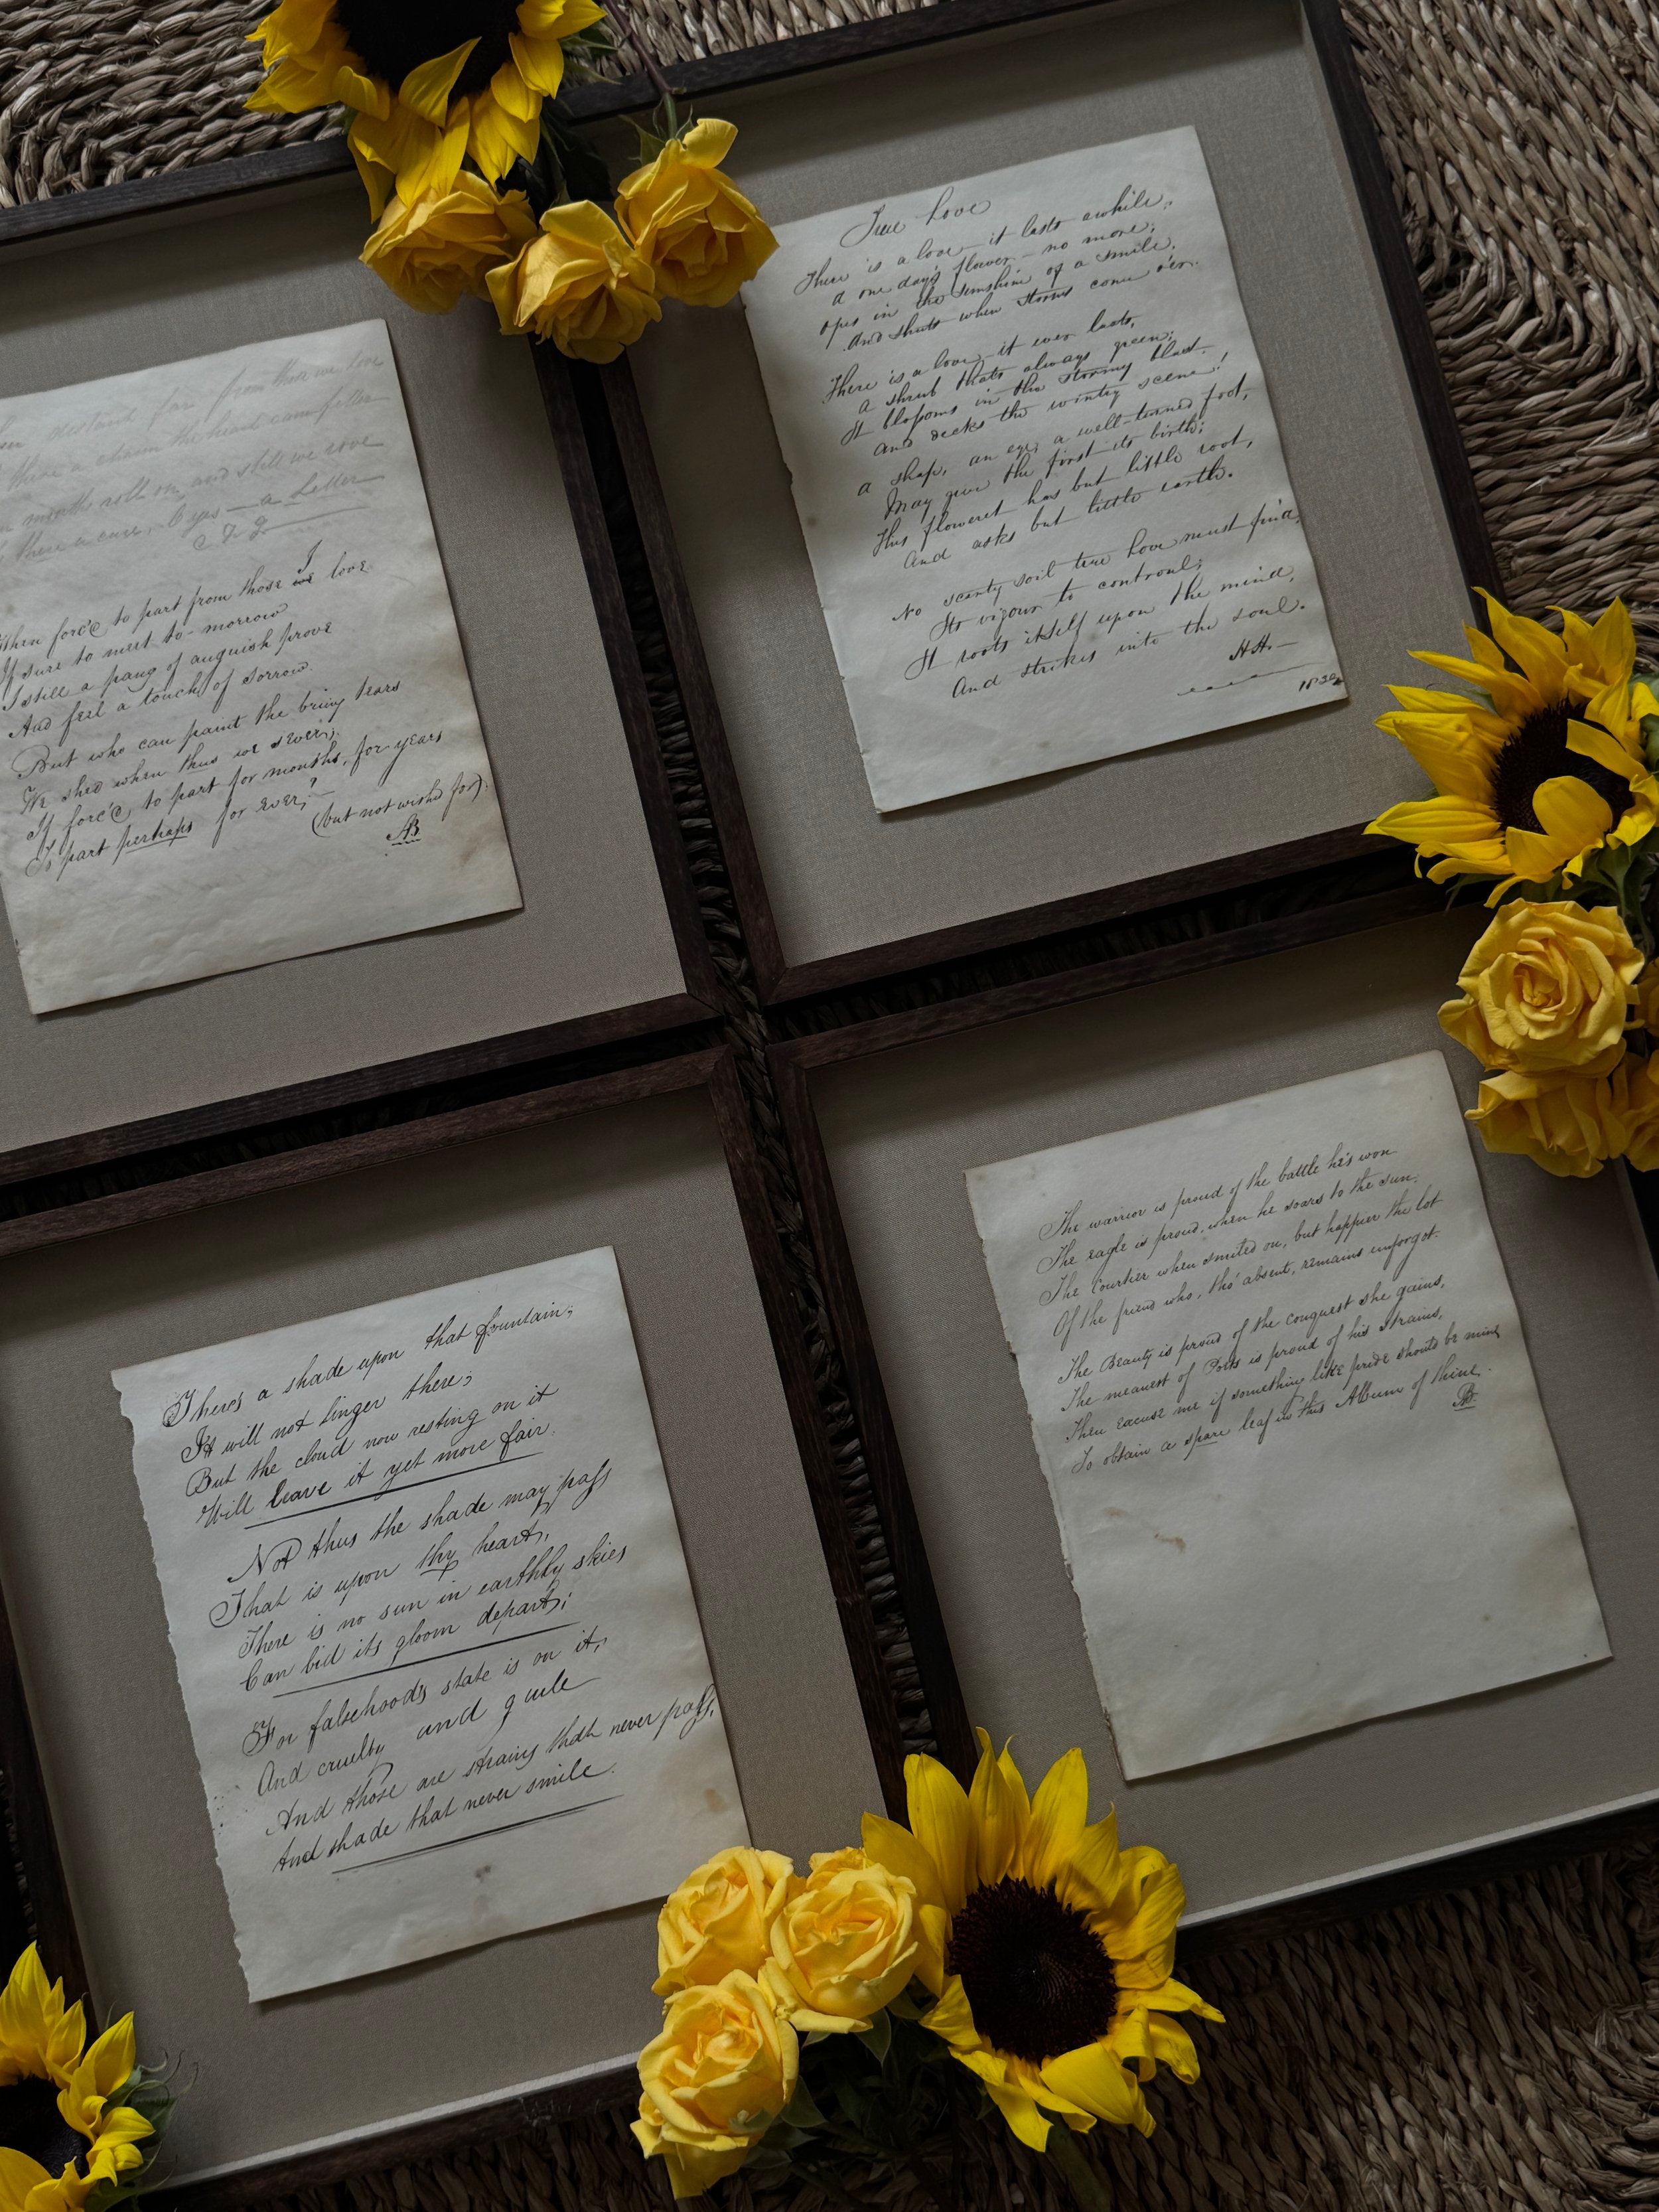 distant far from those we love
there a charm the heart can fetter
months roll on, and still we rove
there a cure, O yes — a Letter
When forc'd to part from those we I love
If sure to meet to-morrow
I still a pang of anguish prove
And feel a touch of sorrow
But who can paint the briny tears
We shed when thus we sever;
If forc'd to part for months, for years
To part perhaps for ever,?
(but not wish'd for).
AB
True Love
There is a love—it lasts awhile,
A one day's flower—no more;
Opes in the sunshine of a smile,
And shuts when storms come o'er.
There is a love—it ever lasts,
A shrub thats always green;
It blossoms in the stormy blast.
And decks the wintry scene!
A shape, an eye, a well-turned foot,
May give the first its birth;
This floweret has but little root,
And asks but little earth.
No scanty soil true Love must find,
Its vigour to controul;
It roots itself upon the mind,
And strikes into the soul.
HH.—
There's a shade upon that fountain;
It will not linger there;
But the cloud now resting on it
Will leave it yet more fair.
Not thus the shade may pass
That is upon thy heart,
There is no sun in earthly skies
Can bid its gloom depart;
For falsehoods state is on it,
And cruelty and guile
And those are stains that never pass,
And shade that never smile.
The warrior is proud of the battle he's won
The eagle is proud, when he soars to the sun.
The Courtier when smiled on, but happier the lot
Of the friend who, tho' absent, remains unforgot.
The Beauty is proud of the conquest she gains,
The meanest of Poets is proud of his strains,
Then excuse me if something like pride should be mine
To obtain a spare leaf in this Album of thine.
AB.